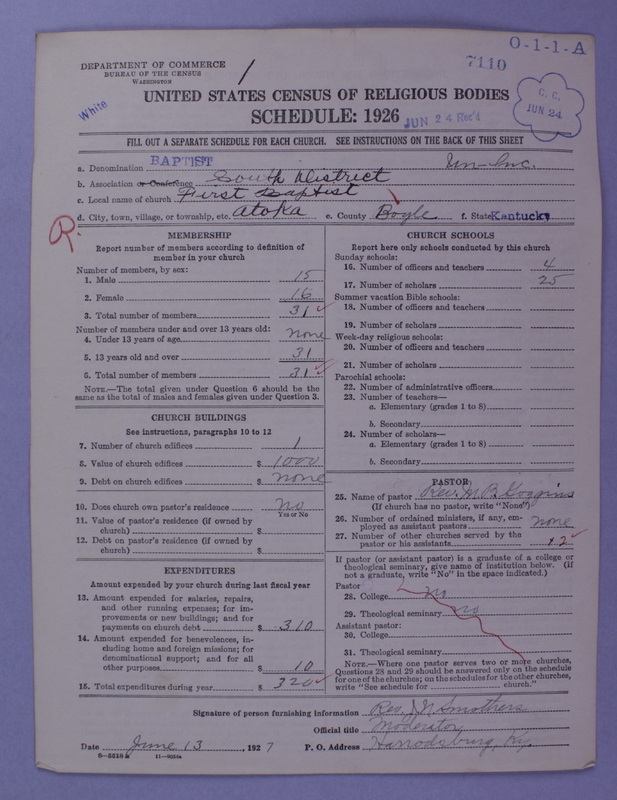 O-1-1-A
7110
DEPARTMENT OF COMMERCE
BUREAU OF THE CENSUS
WASHINGTON
White
UNITED STATES CENSUS OF RELIGIOUS BODIES
SCHEDULE: 1926
JUN 24 Rec'd
C. C.
JUN 24
FILL OUT A SEPARATE SCHEDULE FOR EACH CHURCH. SEE INSTRUCTIONS ON THE BACK OF THIS SHEET
a. Denomination BAPTIST Un-Inc.
b. Association or Conference South District
c. Local name of church First Baptist
d. City, town, village, or township, etc. Atoka e. County Boyle f. State Kentucky
R.
MEMBERSHIP
Report number of members according to definition of
member in your church
Number of members, by sex:
1. Male 15
2. Female 16
3. Total number of members 31
Number of members under and over 13 years old:
4. Under 13 years of age none
5. 13 years old and over 31
6. Total number of members 31
NOTE.—The total given under Question 6 should be
same as the total of males and females given under Question 3.
CHURCH BUILDINGS
See instructions, paragraphs 10 to 12
7. Number of church edifices 1
8. Value of church edifices $ 1000
9. Debt on church edifices $ none
10. Does church own pastor's residence? no
Yes or No
11. Value of pastor's residence (if owned by
church) $
12. Debt on pastor's residence (if owned by
church) $
EXPENDITURES
Amount expended by your church during last fiscal year
13. Amount expended for salaries, repairs,
and other running expenses; for im-
provements or new buildings; and for
payments on church debt $ 310
14. Amount expended for benevolences, in-
cluding home and foreign missions; for
denominational support; and for all
other purposes $ 10
15. Total expenditures during year $ 320
CHURCH SCHOOLS
Report here only schools conducted by this church
Sunday schools:
16. Number of officers and teachers 4
17. Number of scholars 25
Summer vacation Bible schools:
18. Number of officers and teachers
19. Number of scholars
Week-day religious schools:
20. Number of officers and teachers
21. Number of scholars
Parochial schools:
22. Number of administrative officers
23. Number of teachers—
a. Elementary (grades 1 to 8)
b. Secondary
24. Number of scholars—
a. Elementary (grades 1 to 8)
b. Secondary
PASTOR
25. Name of pastor Rev. M. B. Goggins
(If church has no pastor, write "None")
26. Number of ordained ministers, if any, em-
ployed as assistant pastors none
27. Number of other churches served by the
pastor or his assistants 2
If pastor (or assistant pastor) is a graduate of a college or
theological seminary, give name of institution below. (If
not a graduate, write "No" in the space indicated.)
Pastor
28. College no
29. Theological seminary no
Assistant pastor:
30. College
31. Theological seminary
NOTE.—Where one pastor serves two or more churches,
Questions 28 and 29 should be answered only on the schedule
for one of the churches; on the schedules for the other churches,
write "See schedule for church."
Signature of person furnishing information Rev. J. N. Smothers
Official title Moderator
Date June 13, 1927 P. O. Address Harrodsburg, Ky.